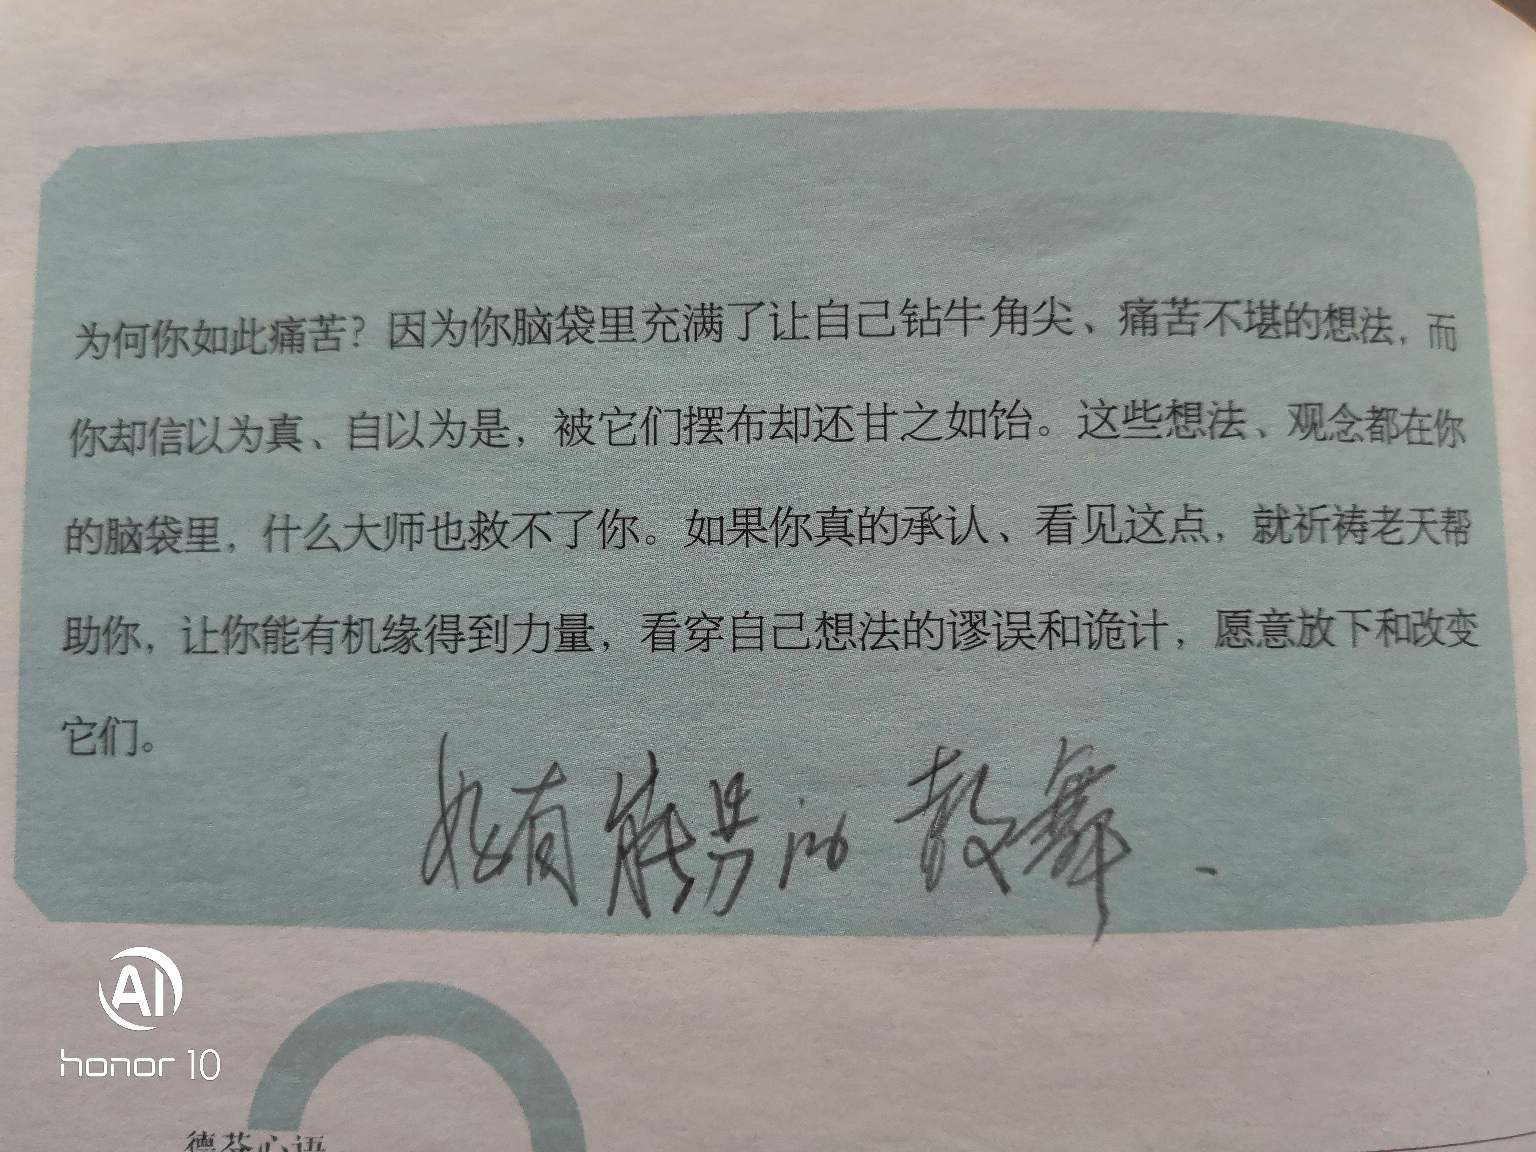 为何你如此痛苦？因为你脑袋里充满了让自己钻牛角尖、痛苦不堪的想法，而
你却信以为真、自以为是，被它们摆布却还甘之如饴。这些想法、观念都在你
的脑袋里，什么大师也救不了你。如果你真的承认、看见这点，就祈祷老天帮
助你，让你能有机缘得到力量，看穿自己想法的谬误和诡计，愿意放下和改变
它们。
有 的 鼓舞
AI
honor 10
德芬心语